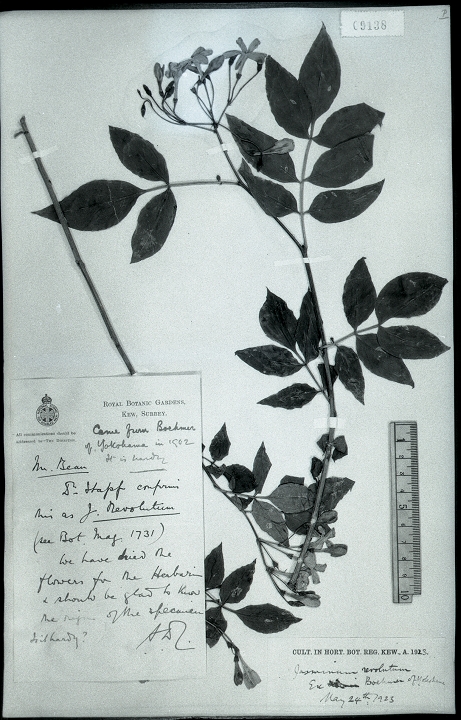 09138
ROYAL BOTANIC GARDENS,
KEW, SURREY.
All communications should be
addressed to—THE DIRECTOR.
Came from Boehmer
of Yokohama in 1902
It is hardy
Mr. Bean
Dr. Stapf confirms
this as J. Revolutum
(see Bot. Mag. 1731)
We have dried the
flowers for the Herbarium
& should be glad to know
the origin of the specimen
Is it hardy?
CULT. IN HORT. BOT. REG. KEW., A. 1923.
Jasminum revolutum
Ex Boehmer of Yokohama
May 24th, 1923